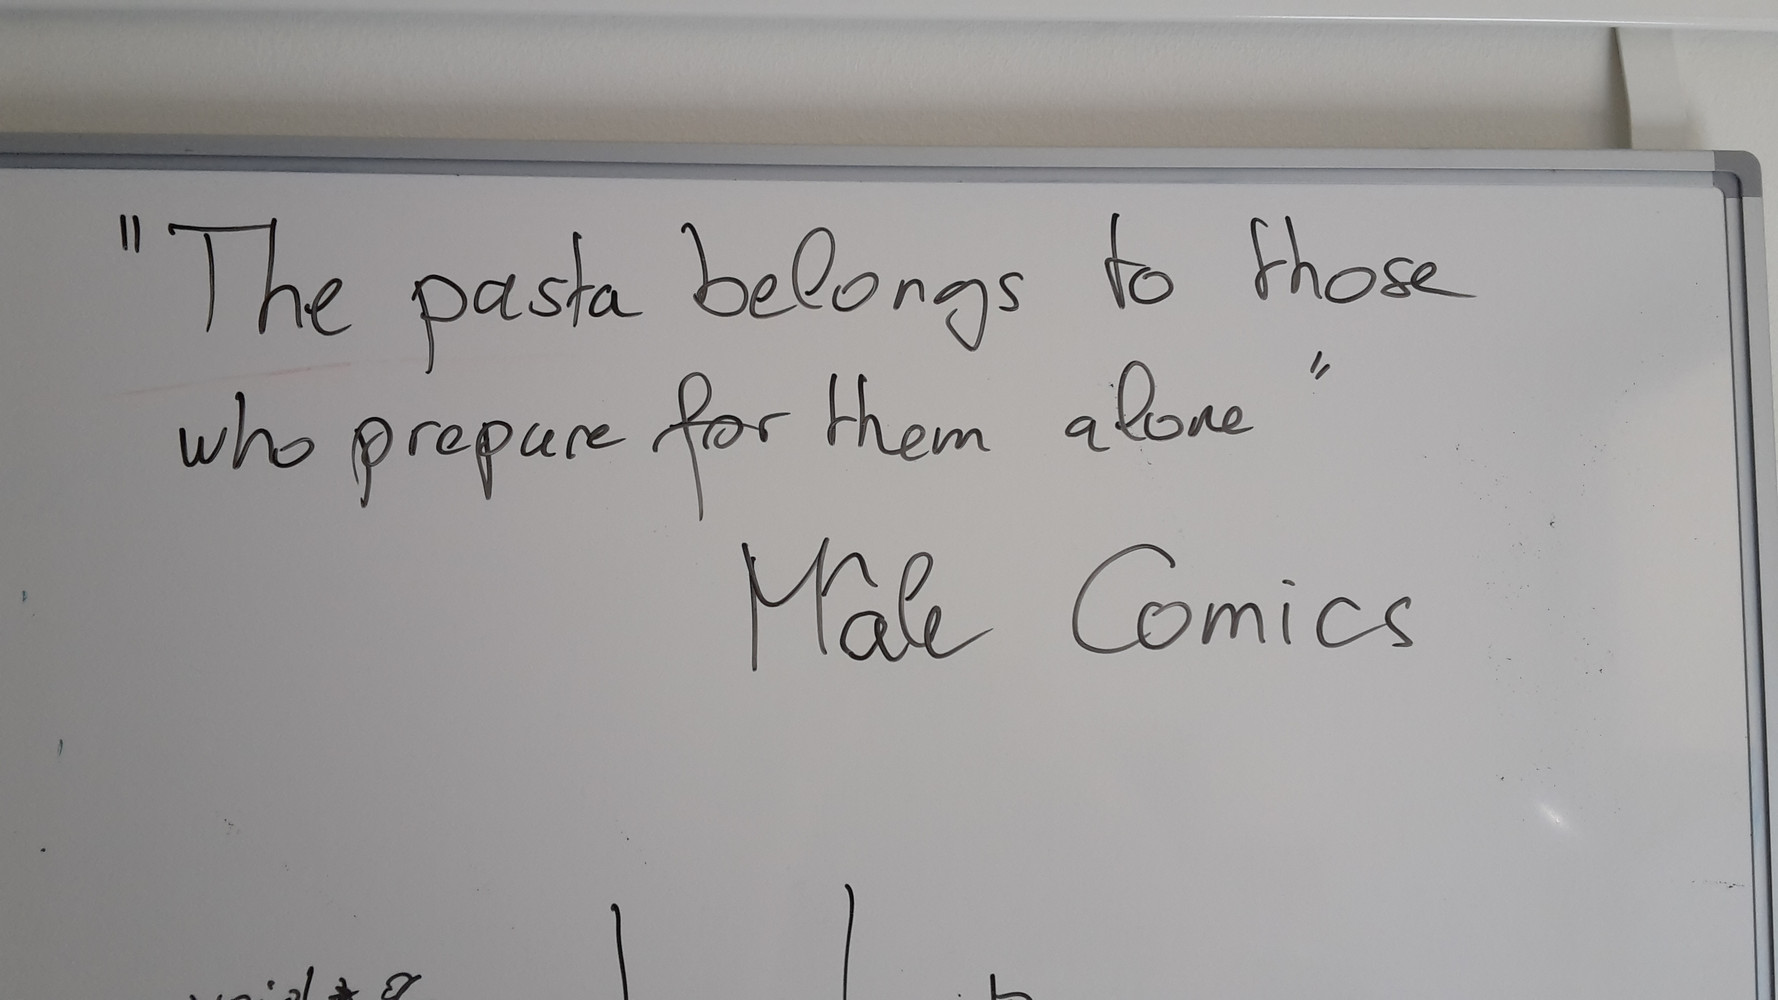 "The pasta belongs to those
who prepare for them alone"
Male Comics